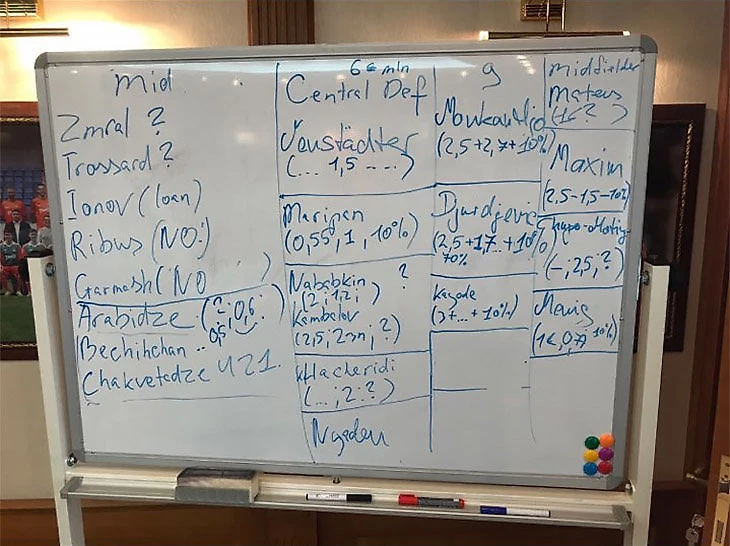 mid
Zmral ?
Trossard ?
Ionov (loan)
Ribus (NO:)
Garmash (NO )
Arabidze (2; 0,6;
0,5
Bechihchan ..
Chakvetadze U21.
6€ mln
Central Def
(... 1,5 ....)
Maripan
(0,55, 1, 10%)
Nababkin ?
(2; 1,2; )
Kambolov
(2,5; 2 ; ?)
Khacheridi
(...; 2: ?)
9
(2,5+2,7+10%)
Djurdjevic
(2,5+1,7...+10%)
10%
Kayode
(3+...+10%)
midfielder
Mateus
(1€ ? )
Maxim
(2,5-1,5-10%)
(-; 2,5; ?)
(1€, 0,7 10%)